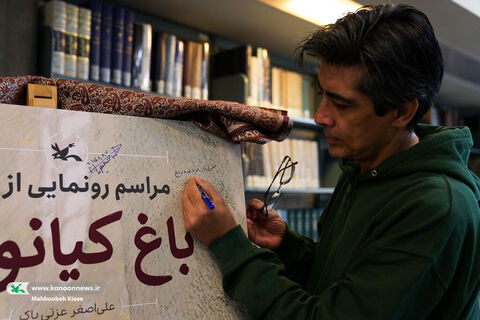 مراسم رونمایی از
باغ کیانو
علی‌اصغر عزتی پاک
www.kanoonnews.ir
Mahboobeh Kiaee